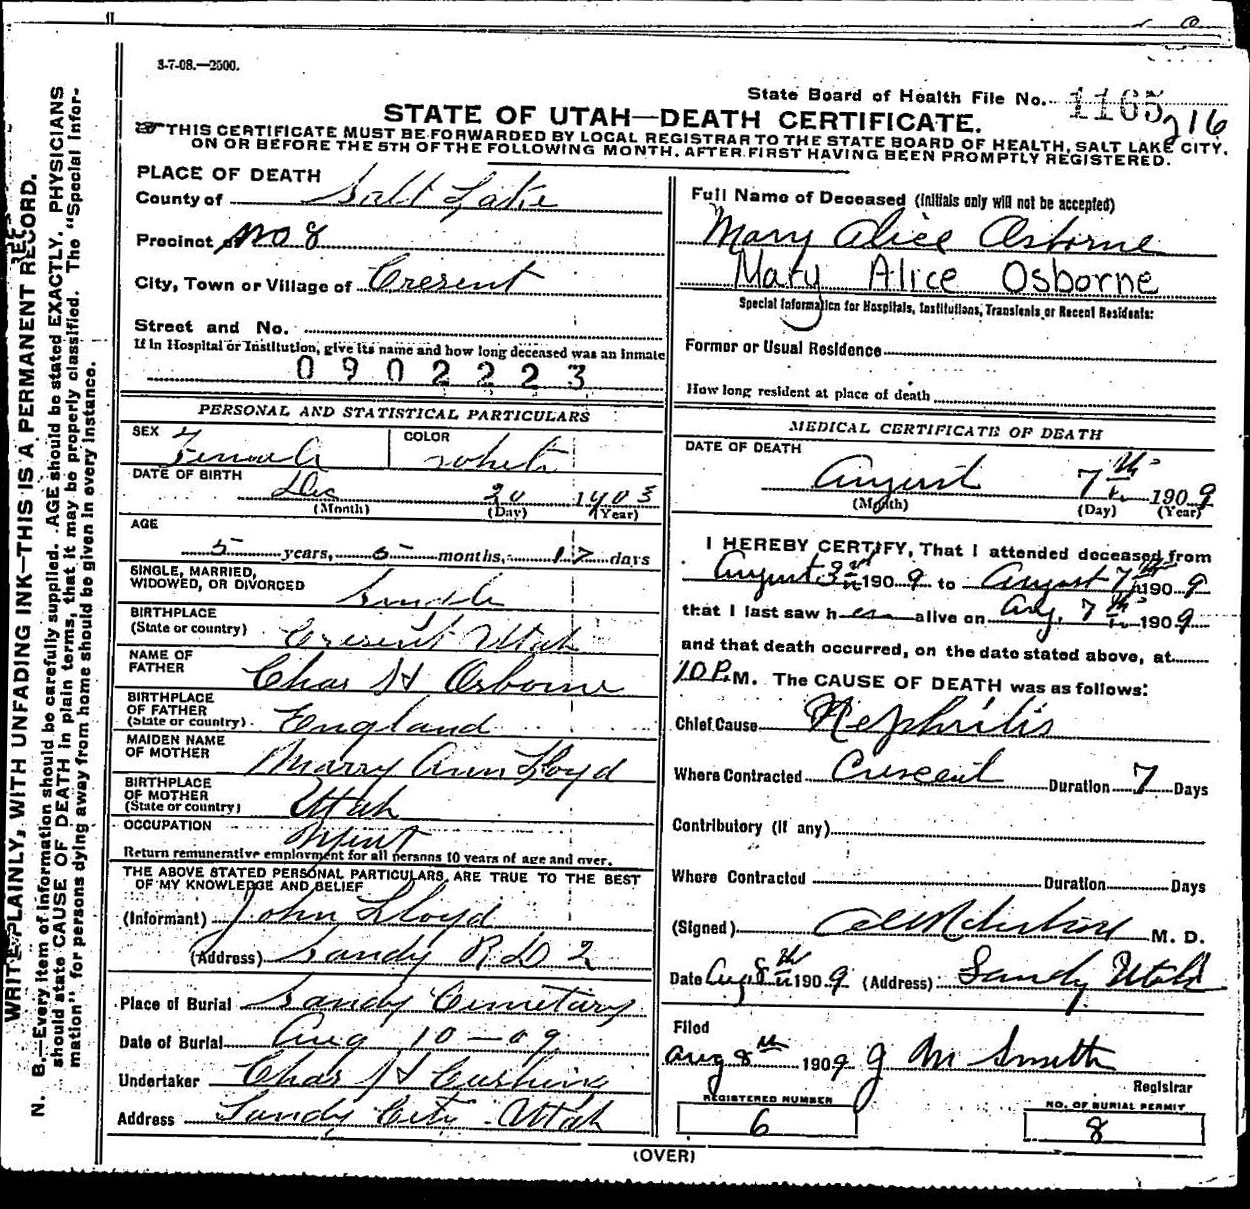 3-7-08.—2500.
State Board of Health File No. 1165
216
STATE OF UTAH—DEATH CERTIFICATE.
THIS CERTIFICATE MUST BE FORWARDED BY LOCAL REGISTRAR TO THE STATE BOARD OF HEALTH, SALT LAKE CITY,
ON OR BEFORE THE 5TH OF THE FOLLOWING MONTH, AFTER FIRST HAVING BEEN PROMPTLY REGISTERED.
WRITE PLAINLY, WITH UNFADING INK—THIS IS A PERMANENT RECORD.
N. B.—Every item of information should be carefully supplied. AGE should be stated EXACTLY. PHYSICIANS
should state CAUSE OF DEATH in plain terms, that it may be properly classified. The "Special Infor-
mation" for persons dying away from home should be given in every instance.
PLACE OF DEATH
County of Salt Lake
Precinct No 8
City, Town or Village of Cresent
Street and No.
If in Hospital or Institution, give its name and how long deceased was an inmate
0902223
PERSONAL AND STATISTICAL PARTICULARS
SEX Female COLOR white
DATE OF BIRTH Dec 20 1903
(Month) (Day) (Year)
AGE
5 years, 6 months, 17 days
SINGLE, MARRIED,
WIDOWED, OR DIVORCED Single
BIRTHPLACE
(State or country) Cresent Utah
NAME OF
FATHER Chas H Osborne
BIRTHPLACE
OF FATHER
(State or country) England
MAIDEN NAME
OF MOTHER Marry Ann Lloyd
BIRTHPLACE
OF MOTHER
(State or country) Utah
OCCUPATION
Return remunerative employment for all persons 10 years of age and over.
THE ABOVE STATED PERSONAL PARTICULARS ARE TRUE TO THE BEST
OF MY KNOWLEDGE AND BELIEF
(Informant) John Lloyd
(Address) Sandy R D 2
Place of Burial Sandy Cemetary
Date of Burial Aug 10—09
Undertaker Chas H Cushing
Address Sandy City Utah
Full Name of Deceased (Initials only will not be accepted)
Mary Alice Osborne
Mary Alice Osborne
Special Information for Hospitals, Institutions, Transients or Recent Residents:
Former or Usual Residence
How long resident at place of death
MEDICAL CERTIFICATE OF DEATH
DATE OF DEATH
August 7th 1909
(Month) (Day) (Year)
I HEREBY CERTIFY, That I attended deceased from
August 3rd 1909 to August 7th 1909
that I last saw her alive on Aug. 7th 1909
and that death occurred, on the date stated above, at
10 P. M. The CAUSE OF DEATH was as follows:
Chief Cause Nephritis
Where Contracted Crescent Duration 7 Days
Contributory (if any)
Where Contracted Duration Days
(Signed) M. D.
Date Aug 8th 1909 (Address) Sandy Utah
Filed
Aug 8th 1909 J M Smith
Registrar
REGISTERED NUMBER
6
NO. OF BURIAL PERMIT
8
(OVER)